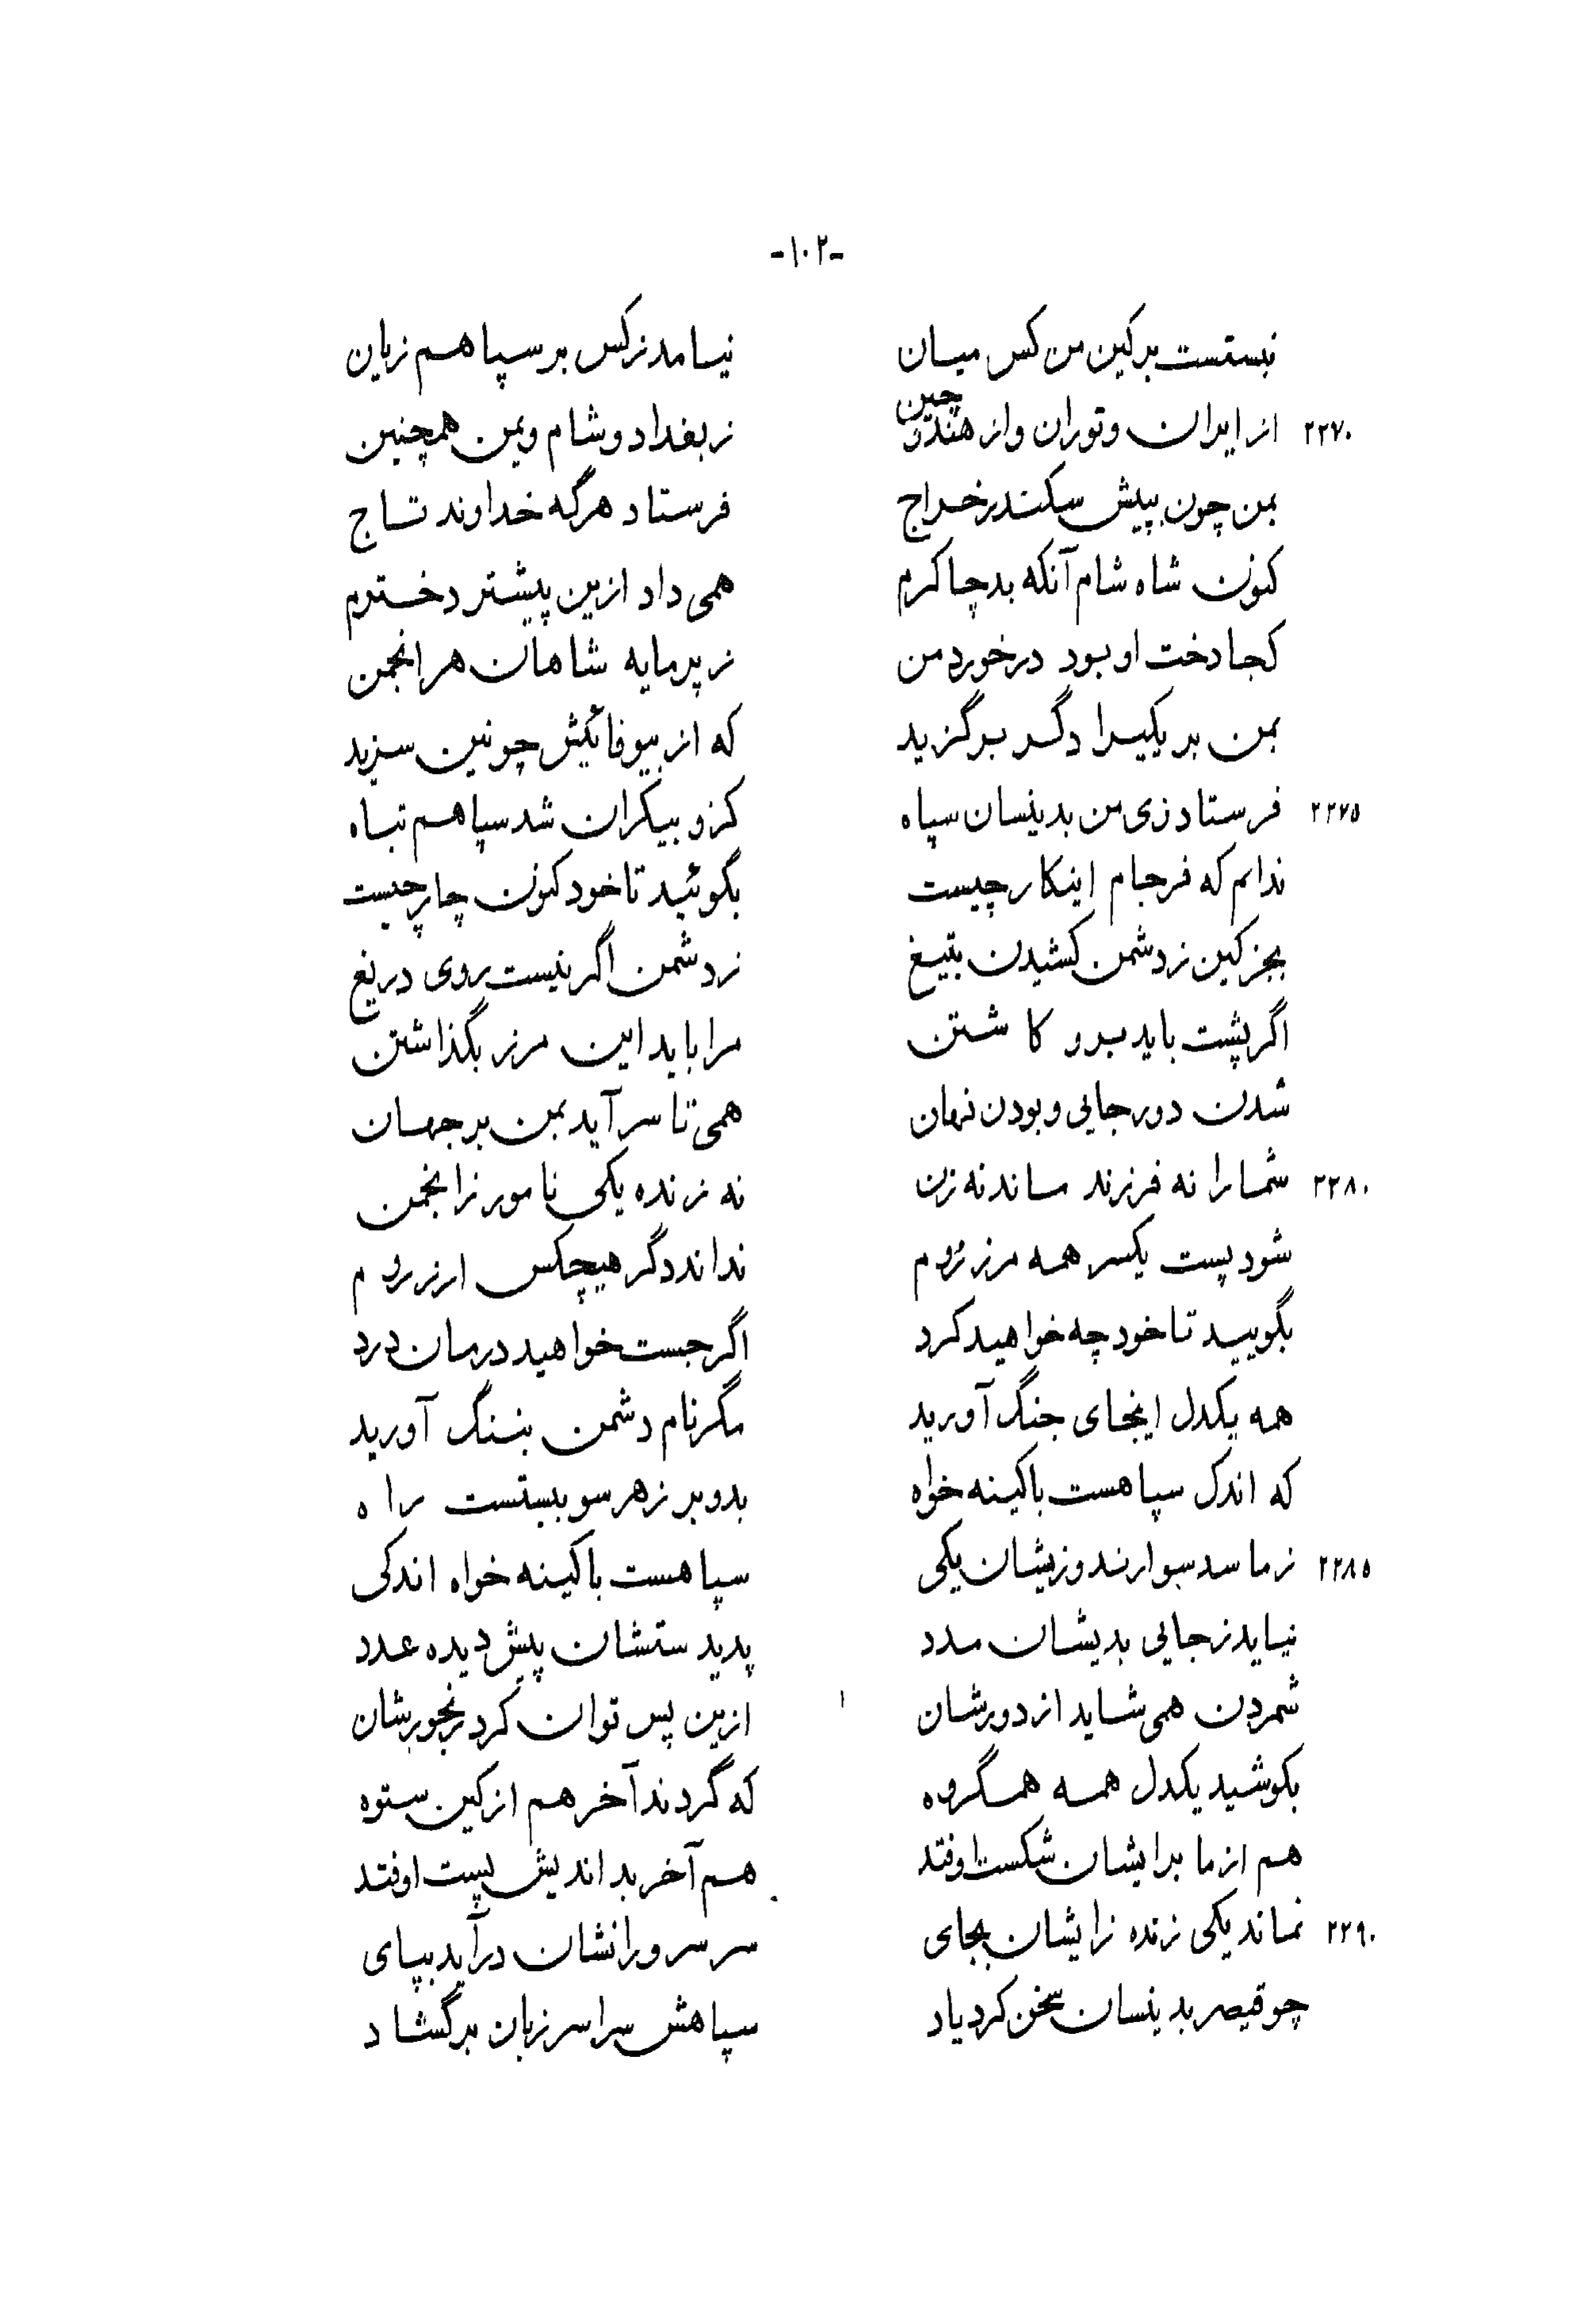 -۱۰۲-
نبستست بر کین من کس میان نیامد ز کس بر سپاهم زیان
۲۲۷۰ از ایران و توران و از هند و چین ز بغداد و شام و یمن همچنین
بمن چون بپیش سکندر خراج فرستاد هرگه خداوند تاج
کنون شاه شام آنکه بد چاکرم همی داد ازین پیشتر دخترم
کجا دخت او بود در خورد من ز پرمایه شاهان هر انجمن
بمن بر یکیرا دگر برگزید که از بیوفائیش چونین سزید
۲۲۷۵ فرستاد زی من بدینسان سپاه کزو بیکران شد سپاهم تباه
ندانم که فرجام اینکار چیست بگوئید تا خود کنون چار چیست
بجز کین ز دشمن کشیدن بتیغ ز دشمن اگر نیست روی دریغ
اگر پشت باید برو کاشتن مرا باید این مرز بگذاشتن
شدن دور جایی و بودن نهان همی تا سر آید بمن بر جهان
۲۲۸۰ شما را نه فرزند ماند نه زن نه زنده یکی نامور زانجمن
شود پست یکسر همه مرز روم نداند دگر هیچکس ارز روم
بگویید تا خود چه خواهید کرد اگر جست خواهید درمان درد
همه یکدل اینجای جنگ آورید مگر نام دشمن بننگ آورید
که اندک سپاهست با کینه خواه بدو بر ز هر سو ببستست راه
۲۲۸۵ ز ما سد سوارند و زیشان یکی سپاهست با کینه خواه اندکی
نیاید ز جایی بدیشان مدد پدیدستشان پیش دیده عدد
شمردن همی شاید از دورشان ازین پس توان کرد رنجورشان
بکوشید یکدل همه همگروه که گردند آخر هم از کین ستوه
هم از ما برایشان شکست اوفتد هم آخر بد اندیش پست اوفتد
۲۲۹۰ نماند یکی زنده زایشان بجای سر سرورانشان درآید بپای
چو قیصر بدینسان سخن کرد یاد سپاهش سراسر زبان برگشاد